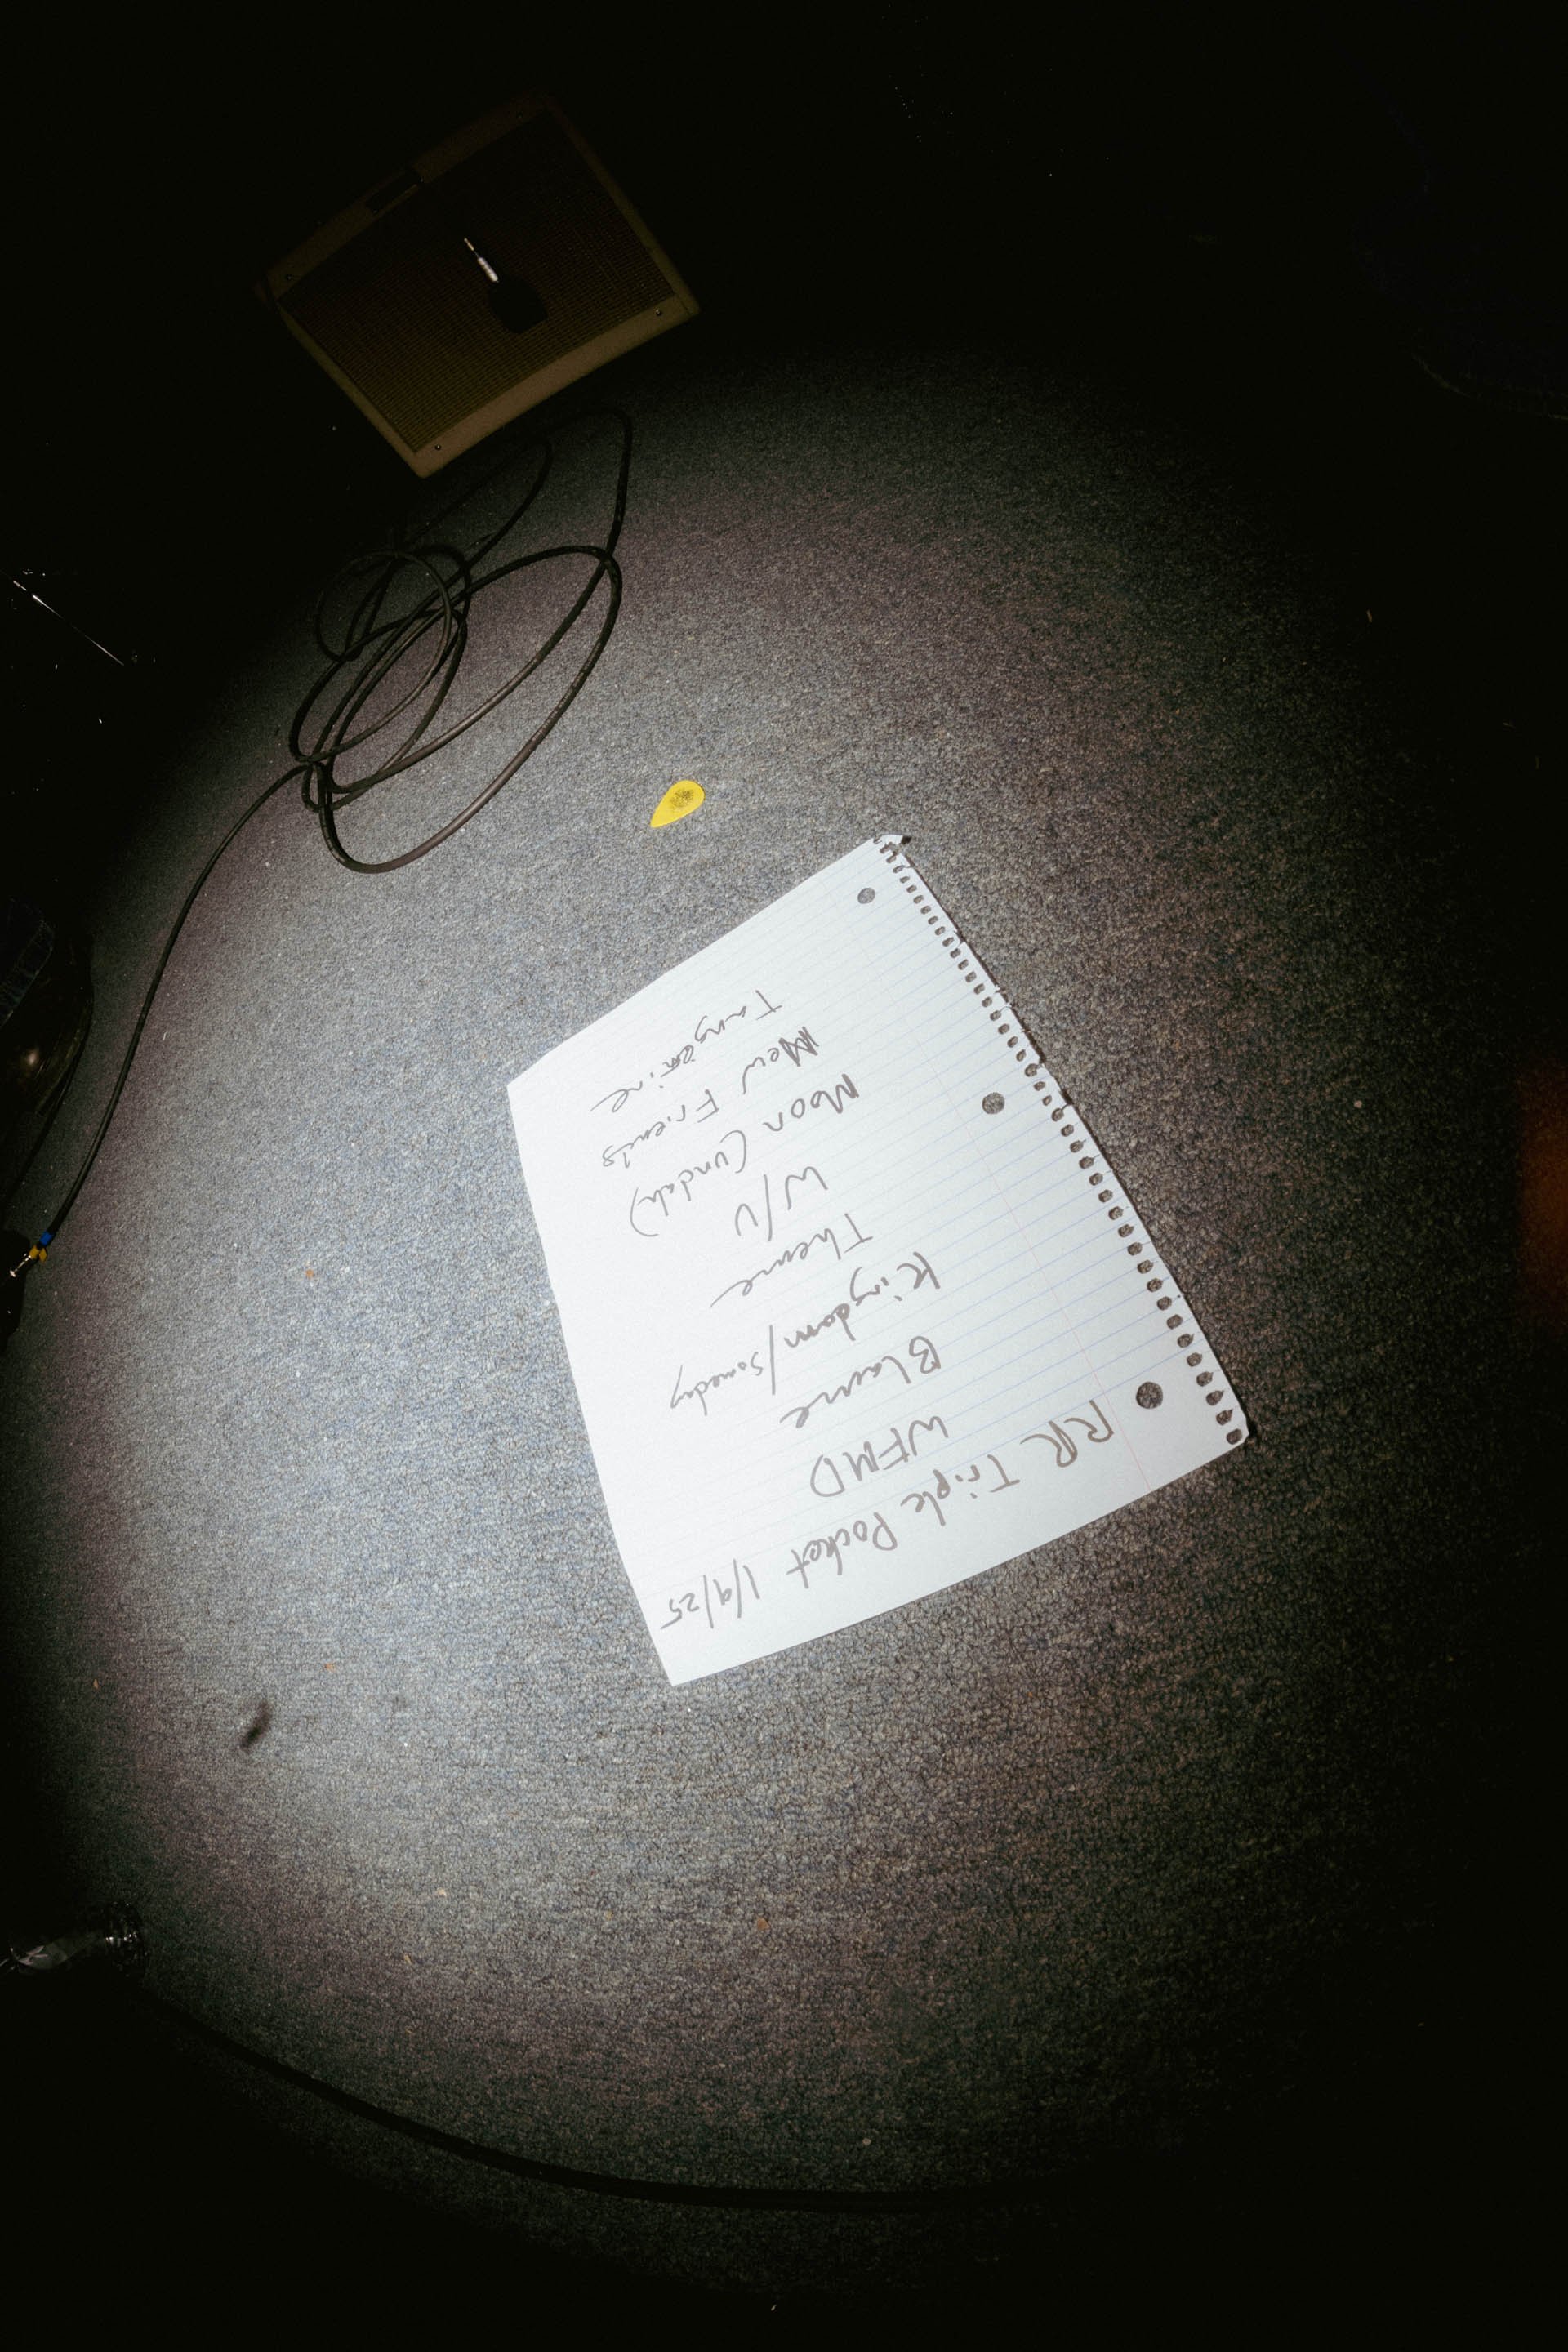 RR Triple Pocket 1/9/25
WFMD
Blame
Kingdom/Someday
Theme
W/U
Moon (undah)
New Friends
Tangerine